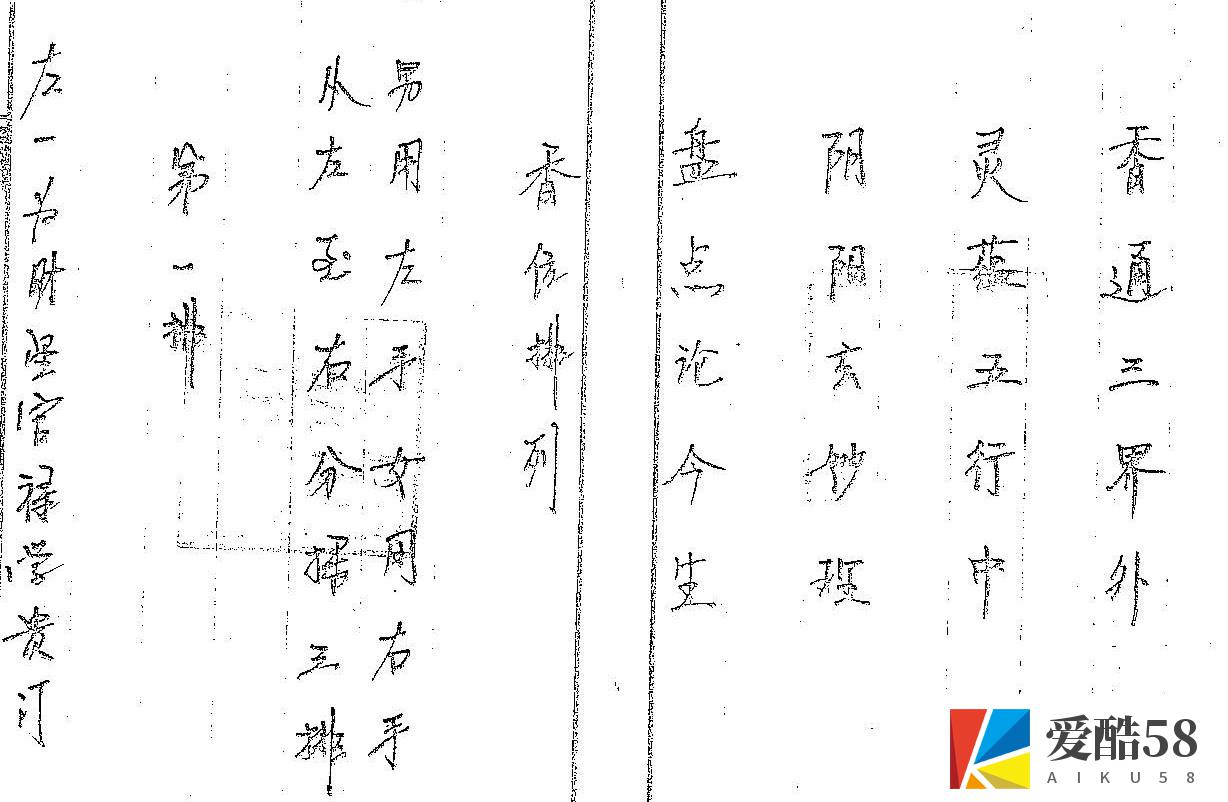 香通三界外
灵蕴五行中
阴阳玄妙理
盘点论今生
香位排列
男用左手女用右手
从左至右分插三排
第一排
左一为财星官禄学贵
爱酷58
AIKU58